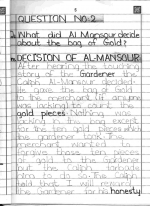 5
QUESTION No:2
What did Al Mansour decide
about the bag of Gold?
DECISION OF AL-MANSOUR
After hearing the touching
story of the Gardener the
Al-Mansour decided
to gave the bag of Gold
to the merchant (if anything
was lacking) to count the
gold pieces. Nothing was
lacking in the bag except
for the ten gold pieces which
the gardener took. The
merchant wanted to
forgive those ten pieces
of gold to the Gardener
but the Caliph forbade
him to do so. The Caliph
told that I will reward
the Gardener for his honesty